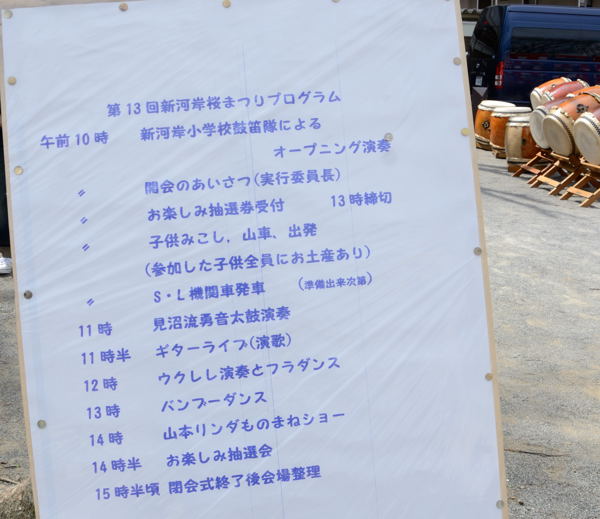 第13回新河岸桜まつりプログラム
午前10時 新河岸小学校鼓笛隊による
オープニング演奏
〃 開会のあいさつ(実行委員長)
〃 お楽しみ抽選券受付 13時締切
〃 子供みこし，山車、出発
(参加した子供全員にお土産あり)
〃 S・L機関車発車 (準備出来次第)
11時 見沼流勇音太鼓演奏
11時半 ギターライブ(演歌)
12時 ウクレレ演奏とフラダンス
13時 バンブーダンス
14時 山本リンダものまねショー
14時半 お楽しみ抽選会
15時半頃 閉会式終了後会場整理